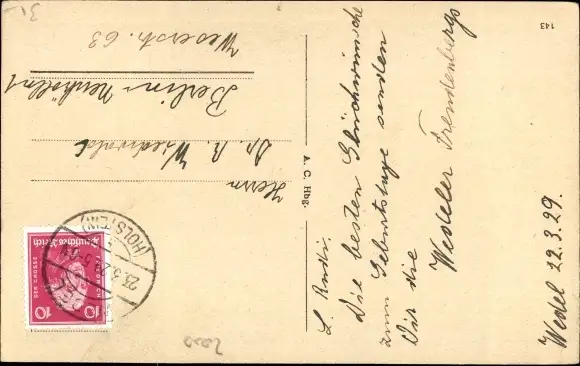 Wedel 22.3.29.
L. Rudi.
Die besten Glückwünsche
zum Geburtstage senden
Dir die
Wedeler
A. C. Hbg.
143
Herrn
Dr. R. Wiedwald
Berlin-Neukölln 1
Weserstr. 63
Deutsches Reich
10 10
(HOLSTEIN)
23.3.29.5-
31